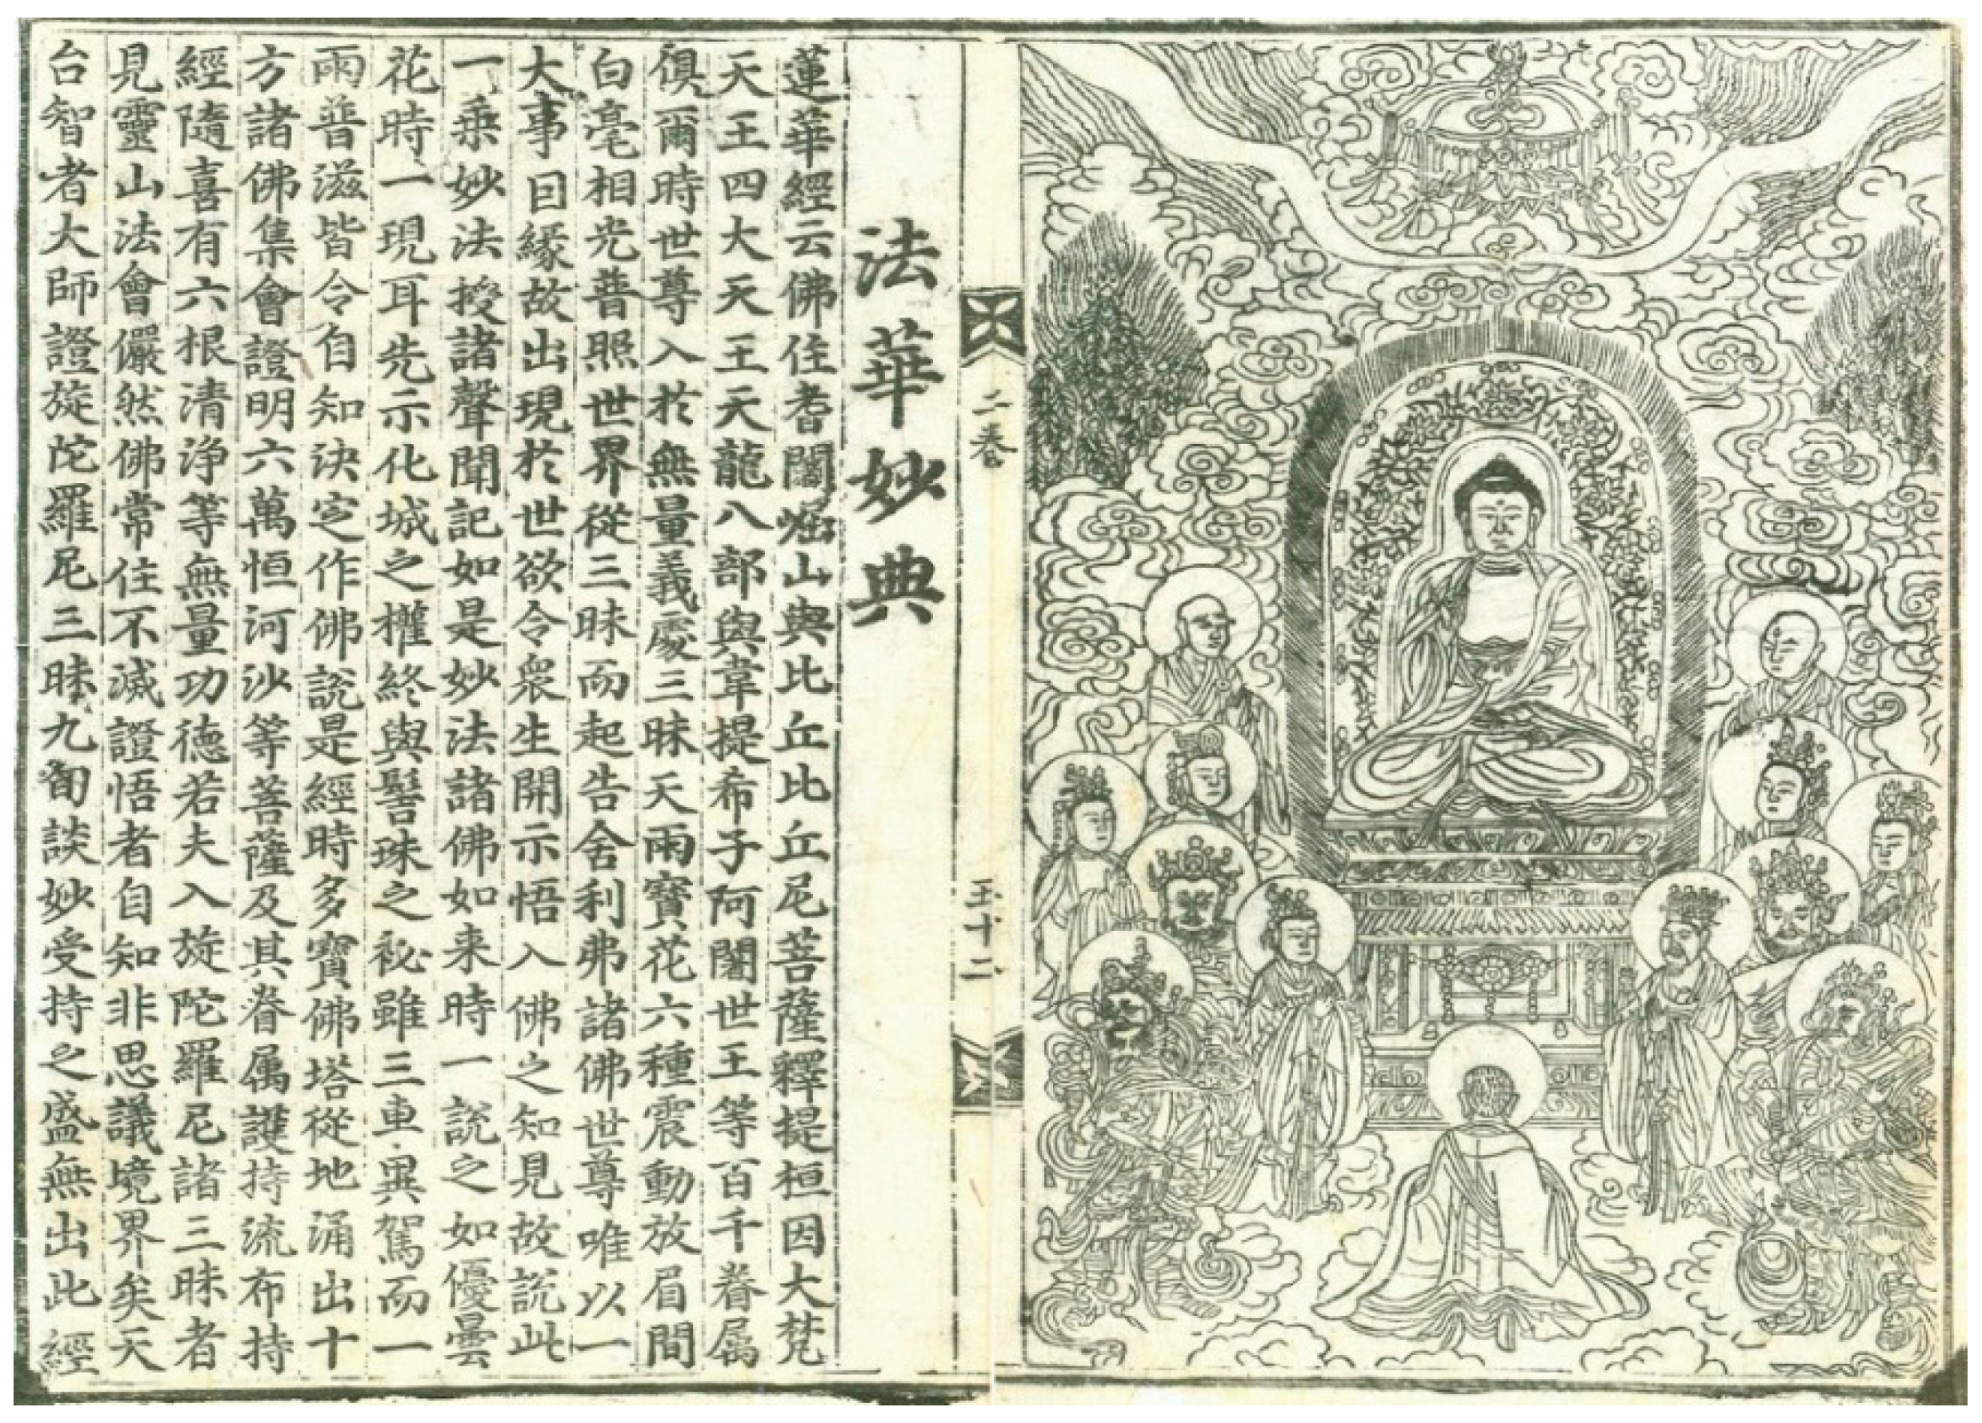 法華妙典
蓮華經云佛住耆闍崛山與比丘比丘尼菩薩釋提桓因大梵
天王四大天王天龍八部與韋提希子阿闍世王等百千眷属
俱爾時世尊入於無量義處三昧天雨寶花六種震動放眉間
白毫相光普照世界從三昧而起告舍利弗諸佛世尊唯以一
大事因緣故出現於世欲令衆生開示悟入佛之知見故説此
一乗妙法授諸聲聞記如是妙法諸佛如来時一説之如優曇
花時一現耳先示化城之權終與髻珠之祕雖三車異駕而一
雨普滋皆令自知決定作佛説是經時多寶佛塔從地涌出十
方諸佛集會證明六萬恒河沙等菩薩及其眷属護持流布持
經隨喜有六根清淨等無量功德若夫入旋陀羅尼諸三昧者
見靈山法會儼然佛常住不滅證悟者自知非思議境界矣天
台智者大師證旋陀羅尼三昧九旬談妙受持之盛無出此經
二卷
五十二